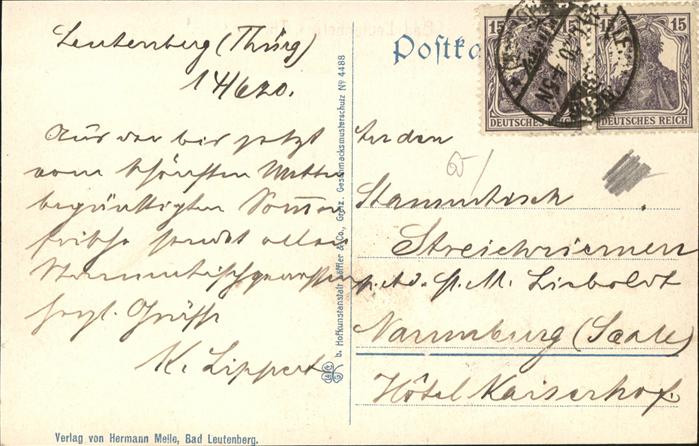 Leutenberg (Thürg)
14/6 20.
Aus der bis jetzt
vom schönsten Wetter
begünstigten Sommer
frische sendet allen
Stammtischgenossen
herzl. Grüße
K. Lippert
Postka
15 15
DEUTSCHES REICH
15
DEUTSCHES REICH
An den
Stammtisch
Streichriemen
Lieboldt
Naumburg (Saale)
Hôtel Kaiserhof.
b. Hofkunstanstalt Löffler & Co., Greiz. Geschmacksmusterschutz No 4488
Verlag von Hermann Meile, Bad Leutenberg.